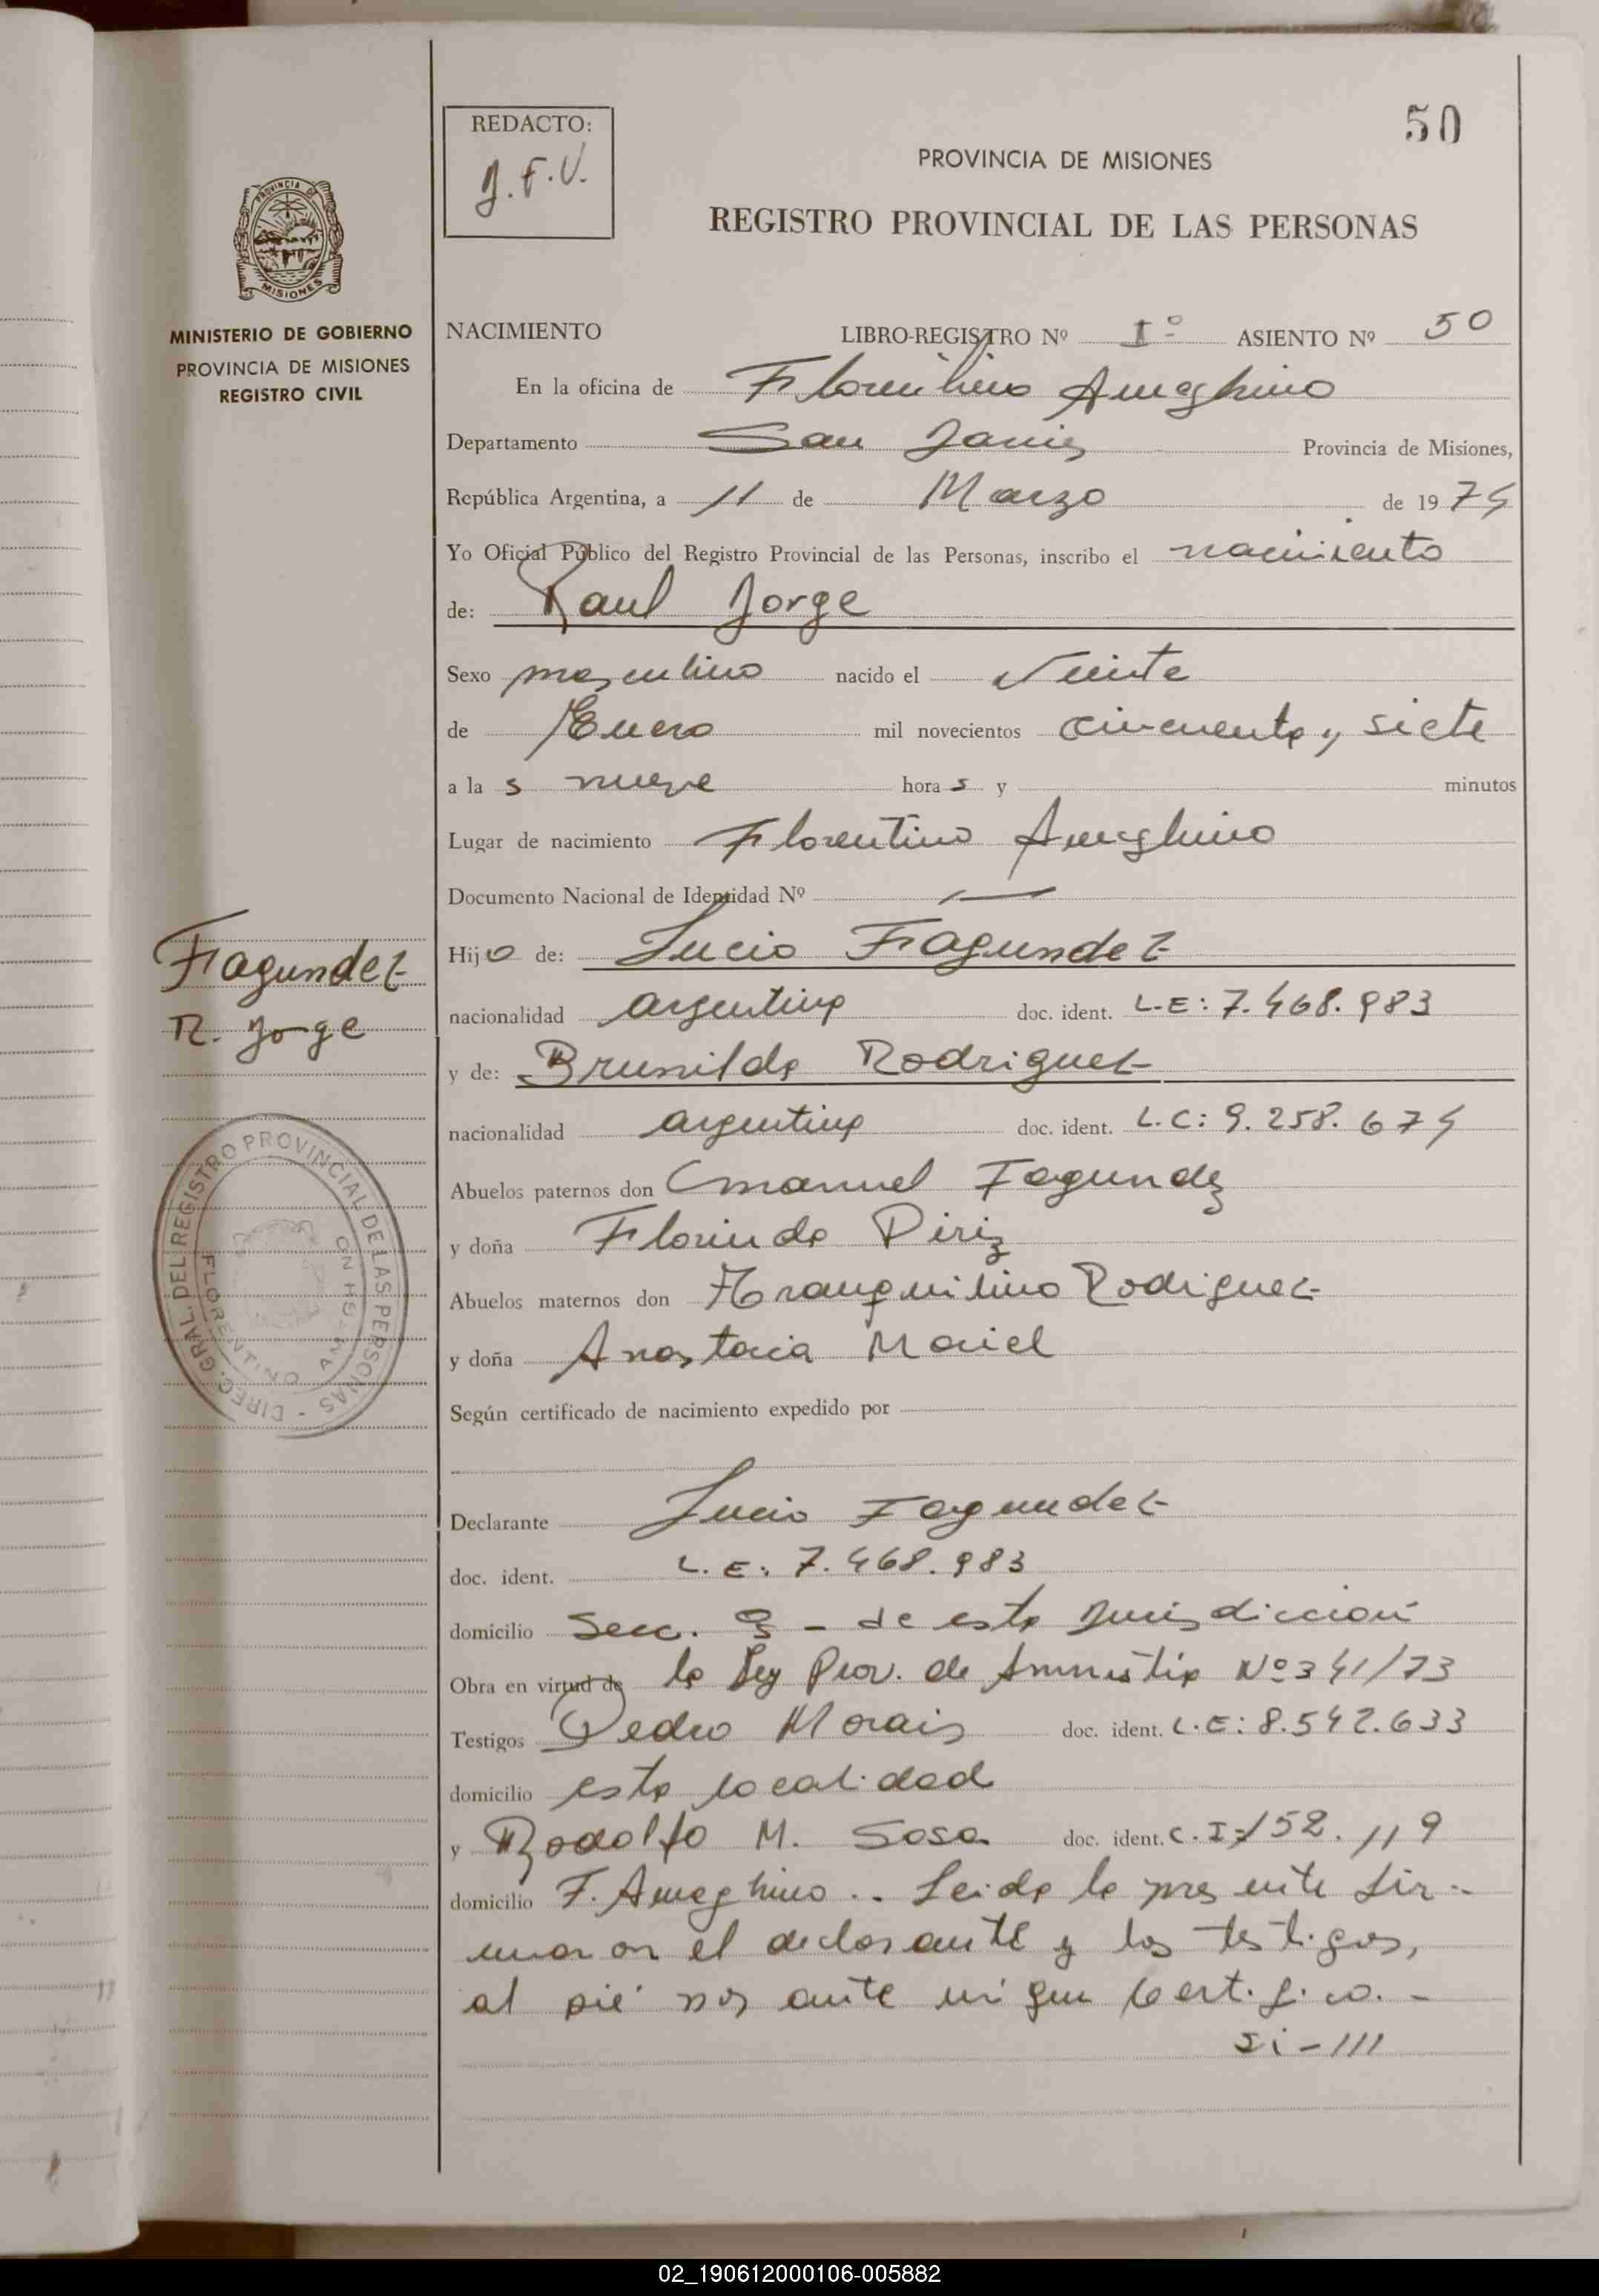 50
REDACTO:
J.F.V.
PROVINCIA DE MISIONES
REGISTRO PROVINCIAL DE LAS PERSONAS
PROVINCIA DE
MISIONES
MINISTERIO DE GOBIERNO
PROVINCIA DE MISIONES
REGISTRO CIVIL
NACIMIENTO LIBRO-REGISTRO Nº Iº ASIENTO Nº 50
En la oficina de Florentino Ameghino
Departamento San Javier Provincia de Misiones,
República Argentina, a 11 de Marzo de 1974
Yo Oficial Público del Registro Provincial de las Personas, inscribo el nacimiento
de: Raul Jorge
Sexo masculino nacido el Veinte
de Enero mil novecientos cincuenta y siete
a la s nueve hora s y minutos
Lugar de nacimiento Florentino Ameghino
Documento Nacional de Identidad Nº —
Hijo de: Lucio Fagundez
nacionalidad argentina doc. ident. L.E: 7.468.983
y de: Brunilda Rodriguez
nacionalidad argentina doc. ident. L.C: 9.258.674
Abuelos paternos don Emanuel Fagundez
y doña Florinda Piriz
Abuelos maternos don Tranquilino Rodriguez
y doña Anastacia Maciel
Según certificado de nacimiento expedido por
Declarante Lucio Fagundez
doc. ident. L.E: 7.468.983
domicilio Secc. 9 - de esta Jurisdicción
Obra en virtud de la Ley Prov. de Amnistia Nº 341/73
Testigos Pedro Morais doc. ident. L.E: 8.542.633
domicilio esta localidad
y Rodolfo M. Sosa doc. ident. C.I: 152.119
domicilio F. Ameghino.. Leida la presente fir-
maron el declarante y los testigos,
al pié por ante mí que Certifico.-
si-///
Fagundez
R. Jorge
DIREC. GRAL. DEL REGISTRO PROVINCIAL DE LAS PERSONAS
FLORENTINO AMEGHINO
02_190612000106-005882